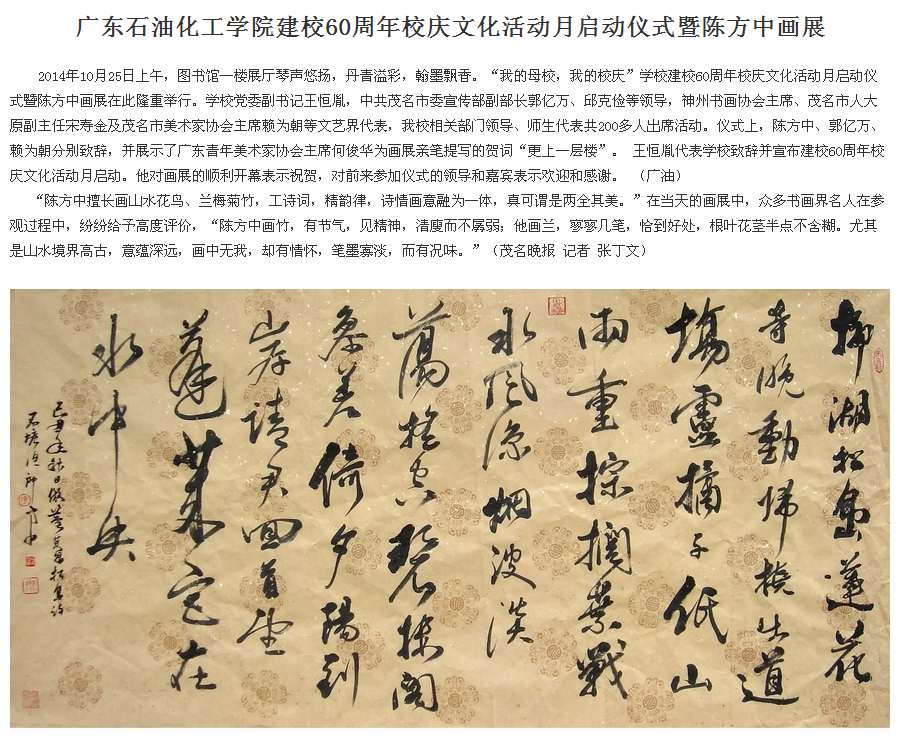 广东石油化工学院建校60周年校庆文化活动月启动仪式暨陈方中画展
2014年10月25日上午，图书馆一楼展厅琴声悠扬，丹青溢彩，翰墨飘香。“我的母校，我的校庆”学校建校60周年校庆文化活动月启动仪
式暨陈方中画展在此隆重举行。学校党委副书记王恒胤，中共茂名市委宣传部副部长郭亿万、邱克俭等领导，神州书画协会主席、茂名市人大
原副主任宋寿金及茂名市美术家协会主席赖为朝等文艺界代表，我校相关部门领导、师生代表共200多人出席活动。仪式上，陈方中、郭亿万、
赖为朝分别致辞，并展示了广东青年美术家协会主席何俊华为画展亲笔提写的贺词“更上一层楼”。 王恒胤代表学校致辞并宣布建校60周年校
庆文化活动月启动。他对画展的顺利开幕表示祝贺，对前来参加仪式的领导和嘉宾表示欢迎和感谢。 （广油）
“陈方中擅长画山水花鸟、兰梅菊竹，工诗词，精韵律，诗情画意融为一体，真可谓是两全其美。”在当天的画展中，众多书画界名人在参
观过程中，纷纷给予高度评价，“陈方中画竹，有节气，见精神，清廋而不孱弱；他画兰，寥寥几笔，恰到好处，根叶花茎半点不含糊。尤其
是山水境界高古，意蕴深远，画中无我，却有情怀，笔墨寡淡，而有况味。”（茂名晚报 记者 张丁文）
柳湖松島蓮花
寺晚動歸橈出道
場盧橘子低山
雨重棕櫚葉戰
水風涼烟波淡
蕩摇空碧樓閣
參差倚夕陽到
岸請君回首望
蓬萊宫在
水中央
己丑年秋日